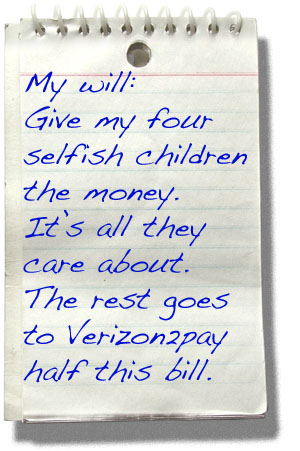 My will:
Give my four
selfish children
the money.
It's all they
care about.
The rest goes
to Verizon2pay
half this bill.